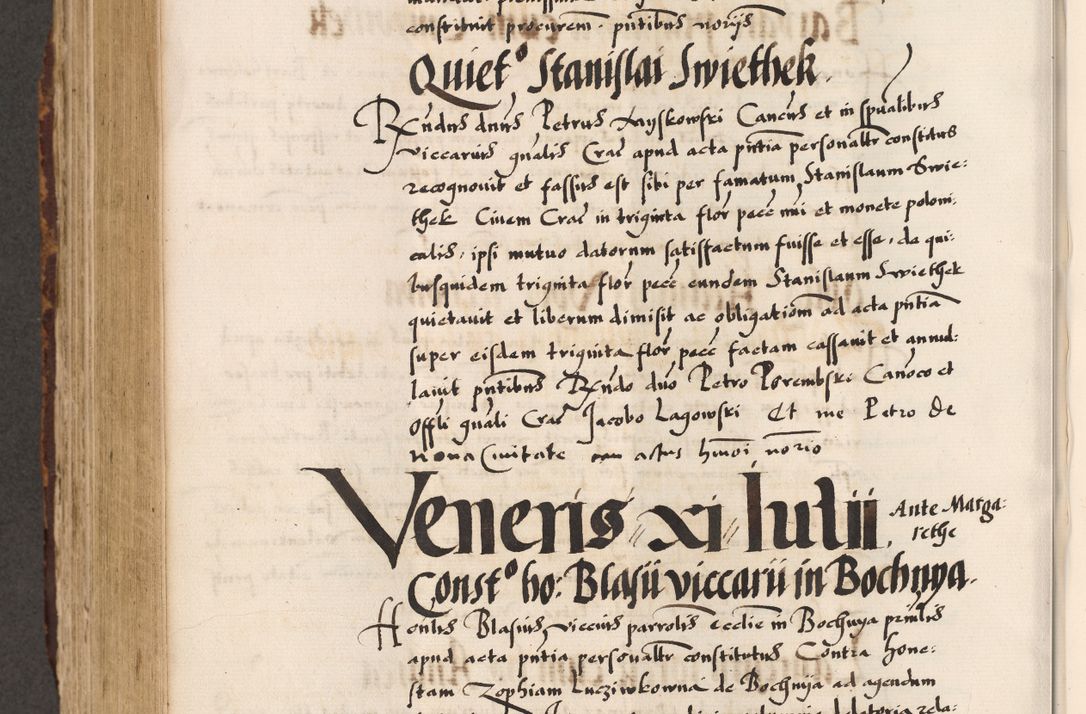 constituit procurem. pntibus norijs
Quiet.o Stanislai Swiethek.
Rndus dnus Petrus Myskowski Cancus et in spualibus
viccarius gnalis Crac apud acta pntia personaltr constitutus
recognovit et fassus est sibi per famatum Stanislaum Swie:
thek Civem Crac in triginta flor pecc nui et monete poloni:
calis, ipsi mutuo datorum satisffactum fuisse et esse, de qui:
busquidem triginta flor pecc eundem Stanislaum Swiethek
quietavit et liberum dimisit ac obligationem ad acta pntia
super eisdem triginta flor pecc factam cassavit et annul:
lavit pntibus Rndo dno Petro Porembski Canoco et
Offli gnali Crac Jacobo Lagowski Et me Petro de
Nova Civitate actus hmoi norio
Veneris xi Iulii,
Ante Marga:
rethe
Const.o ho: Blasii viccarii in Bochnya.
Honlis Blasius, viccius parrolis ecclie in Bochnya prinlis
apud acta pntia personaltr constitutus Contra hone:
stam Zophiam Lucziwkowna de Bochnija ad agendum